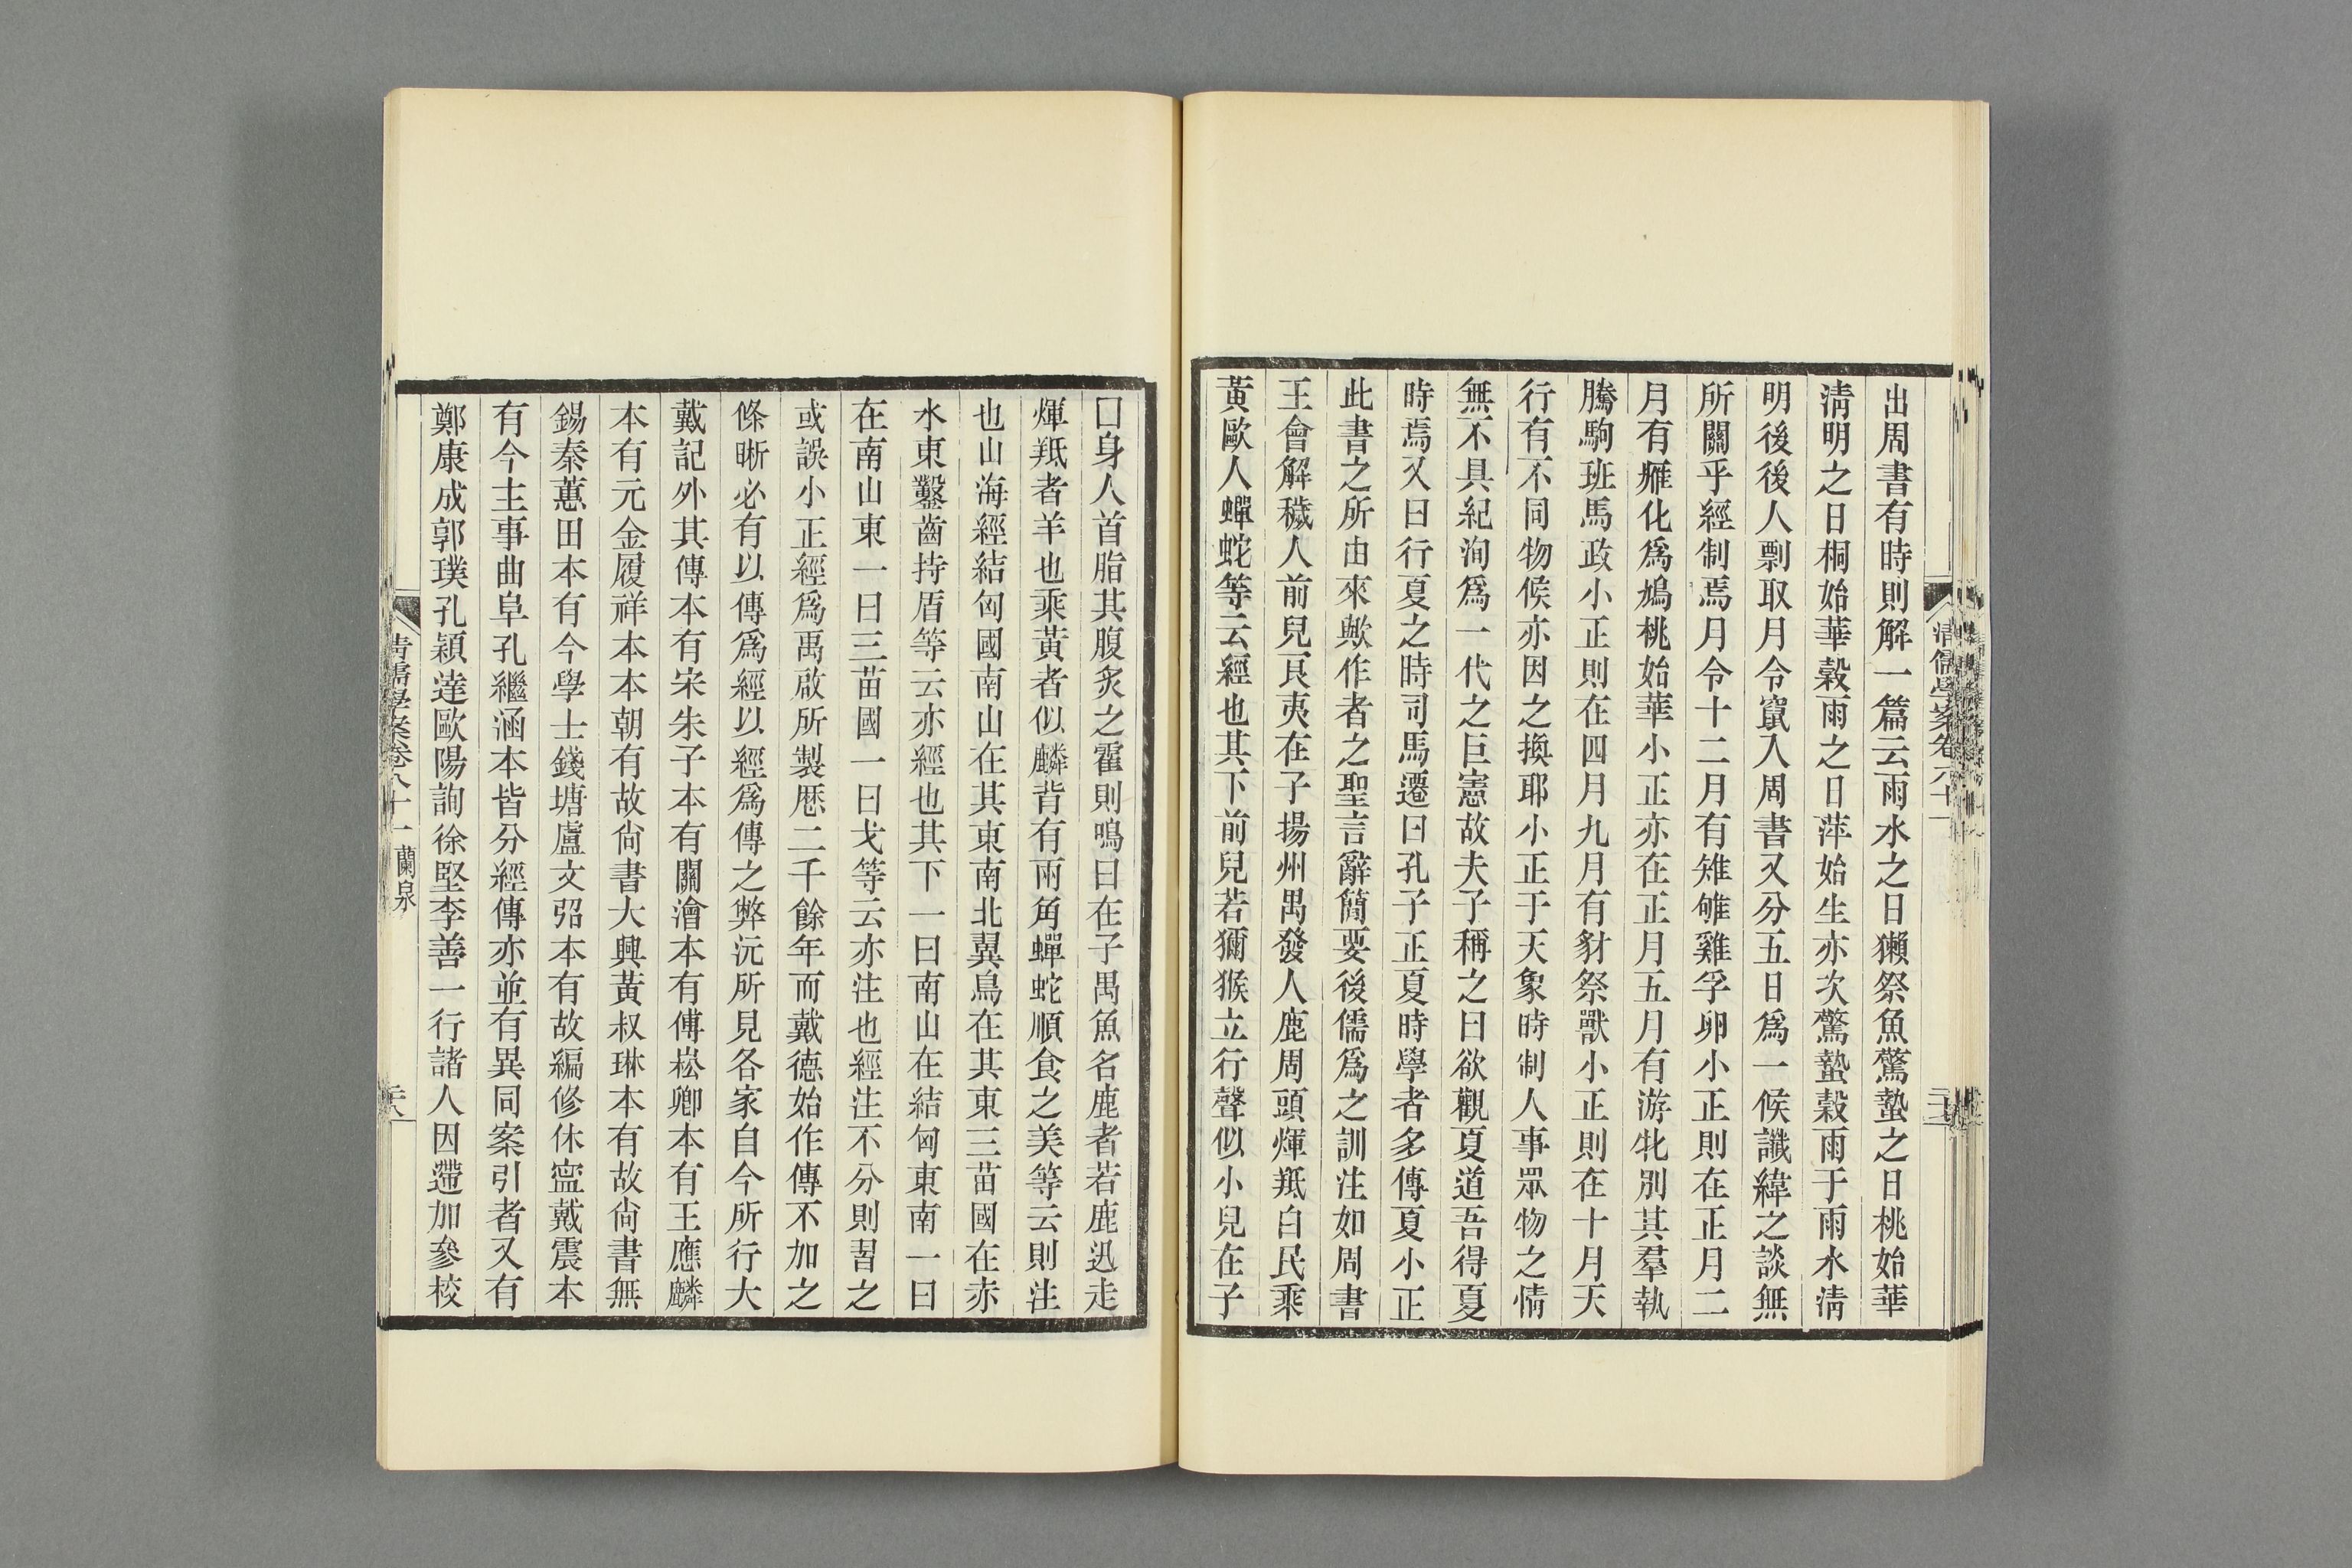 出周書有時則解一篇云雨水之日獺祭魚驚蟄之日桃始華
清明之日桐始華穀雨之日萍始生亦次驚蟄穀雨于雨水清
明後後人剽取月令竄入周書又分五日爲一候讖緯之談無
所關乎經制焉月令十二月有雉雊雞孚卵小正則在正月二
月有雁化爲鳩桃始華小正亦在正月五月有游牝別其羣執
騰駒班馬政小正則在四月九月有豺祭獸小正則在十月天
行有不同物候亦因之換耶小正于天象時制人事眾物之情
無不具紀洵爲一代之巨憲故夫子稱之曰欲觀夏道吾得夏
時焉又曰行夏之時司馬遷曰孔子正夏時學者多傳夏小正
此書之所由來歟作者之聖言辭簡要後儒爲之訓注如周書
王會解穢人前兒良夷在子揚州禺發人鹿周頭煇羝白民乘
黃歐人蟬蛇等云經也其下前兒若獼猴立行聲似小兒在子
口身人首脂其腹炙之霍則鳴曰在子禺魚名鹿者若鹿迅走
煇羝者羊也乘黃者似麟背有兩角蟬蛇順食之美等云則注
也山海經結匈國南山在其東南北翼鳥在其東三苗國在赤
水東鑿齒持盾等云亦經也其下一曰南山在結匈東南一曰
在南山東一曰三苗國一曰戈等云亦注也經注不分則習之
或誤小正經爲禹啟所製厯二千餘年而戴德始作傳不加之
條晰必有以傳爲經以經爲傳之弊沅所見各家自今所行大
戴記外其傳本有宋朱子本有關澮本有傅崧卿本有王應麟
本有元金履祥本本朝有故尙書大興黃叔琳本有故尙書無
錫秦蕙田本有今學士錢塘盧文弨本有故編修休寍戴震本
有今主事曲阜孔繼涵本皆分經傳亦並有異同案引者又有
鄭康成郭璞孔穎達歐陽詢徐堅李善一行諸人因遰加參校
清儒學案卷八十一 蘭泉